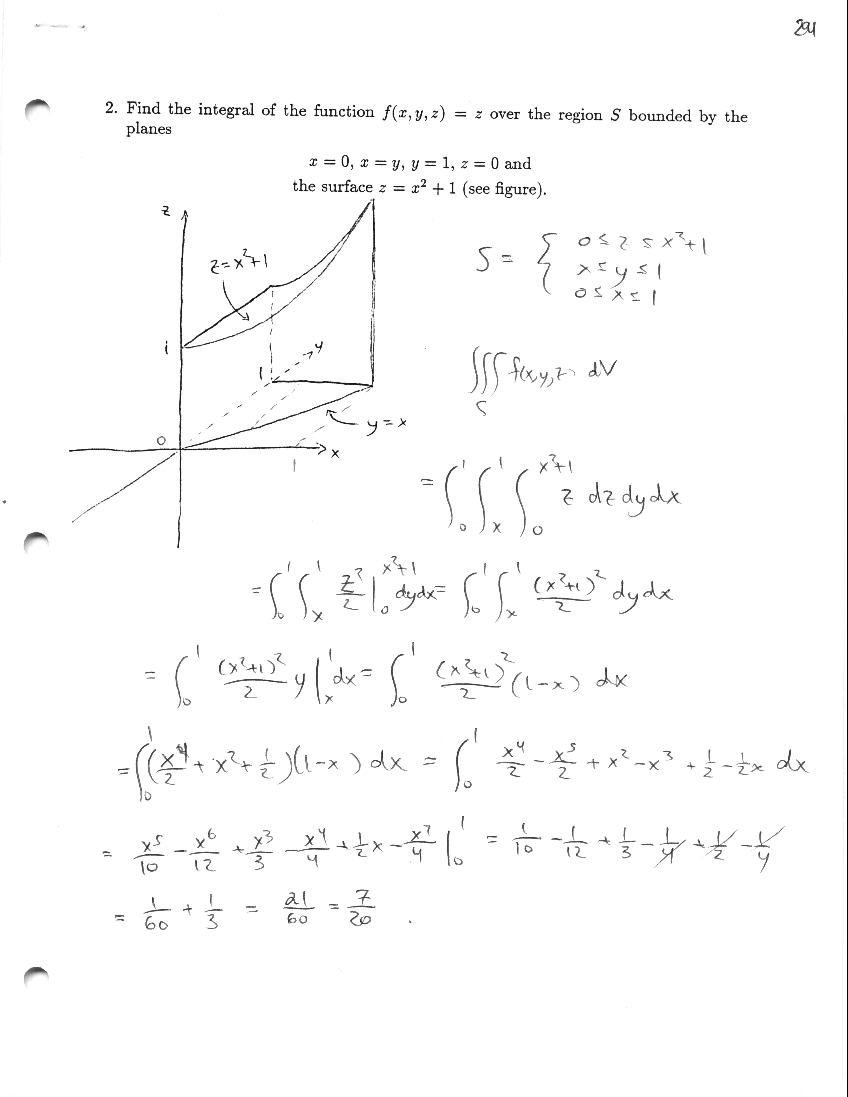 294
2. Find the integral of the function f(x, y, z) = z over the region S bounded by the
planes
x = 0, x = y, y = 1, z = 0 and
the surface z = x² + 1 (see figure).
z
z=x²+1
1
y
1
0
y=x
x
1
S = { 0 ≤ z ≤ x²+1
x ≤ y ≤ 1
0 ≤ x ≤ 1
∭_S f(x,y,z) dV
= ∫_0^1 ∫_x^1 ∫_0^{x²+1} z dz dy dx
= ∫_0^1 ∫_x^1 z²/2 |_0^{x²+1} dydx = ∫_0^1 ∫_x^1 (x²+1)²/2 dy dx
= ∫_0^1 (x²+1)²/2 y |_x^1 dx = ∫_0^1 (x²+1)²/2 (1-x) dx
= ∫_0^1 (x⁴/2 + x² + 1/2)(1-x) dx = ∫_0^1 x⁴/2 - x⁵/2 + x² - x³ + 1/2 - 1/2x dx
= x⁵/10 - x⁶/12 + x³/3 - x⁴/4 + 1/2x - x²/4 |_0^1 = 1/10 - 1/12 + 1/3 - 1/4 + 1/2 - 1/4
= 1/60 + 1/3 = 21/60 = 7/20 .